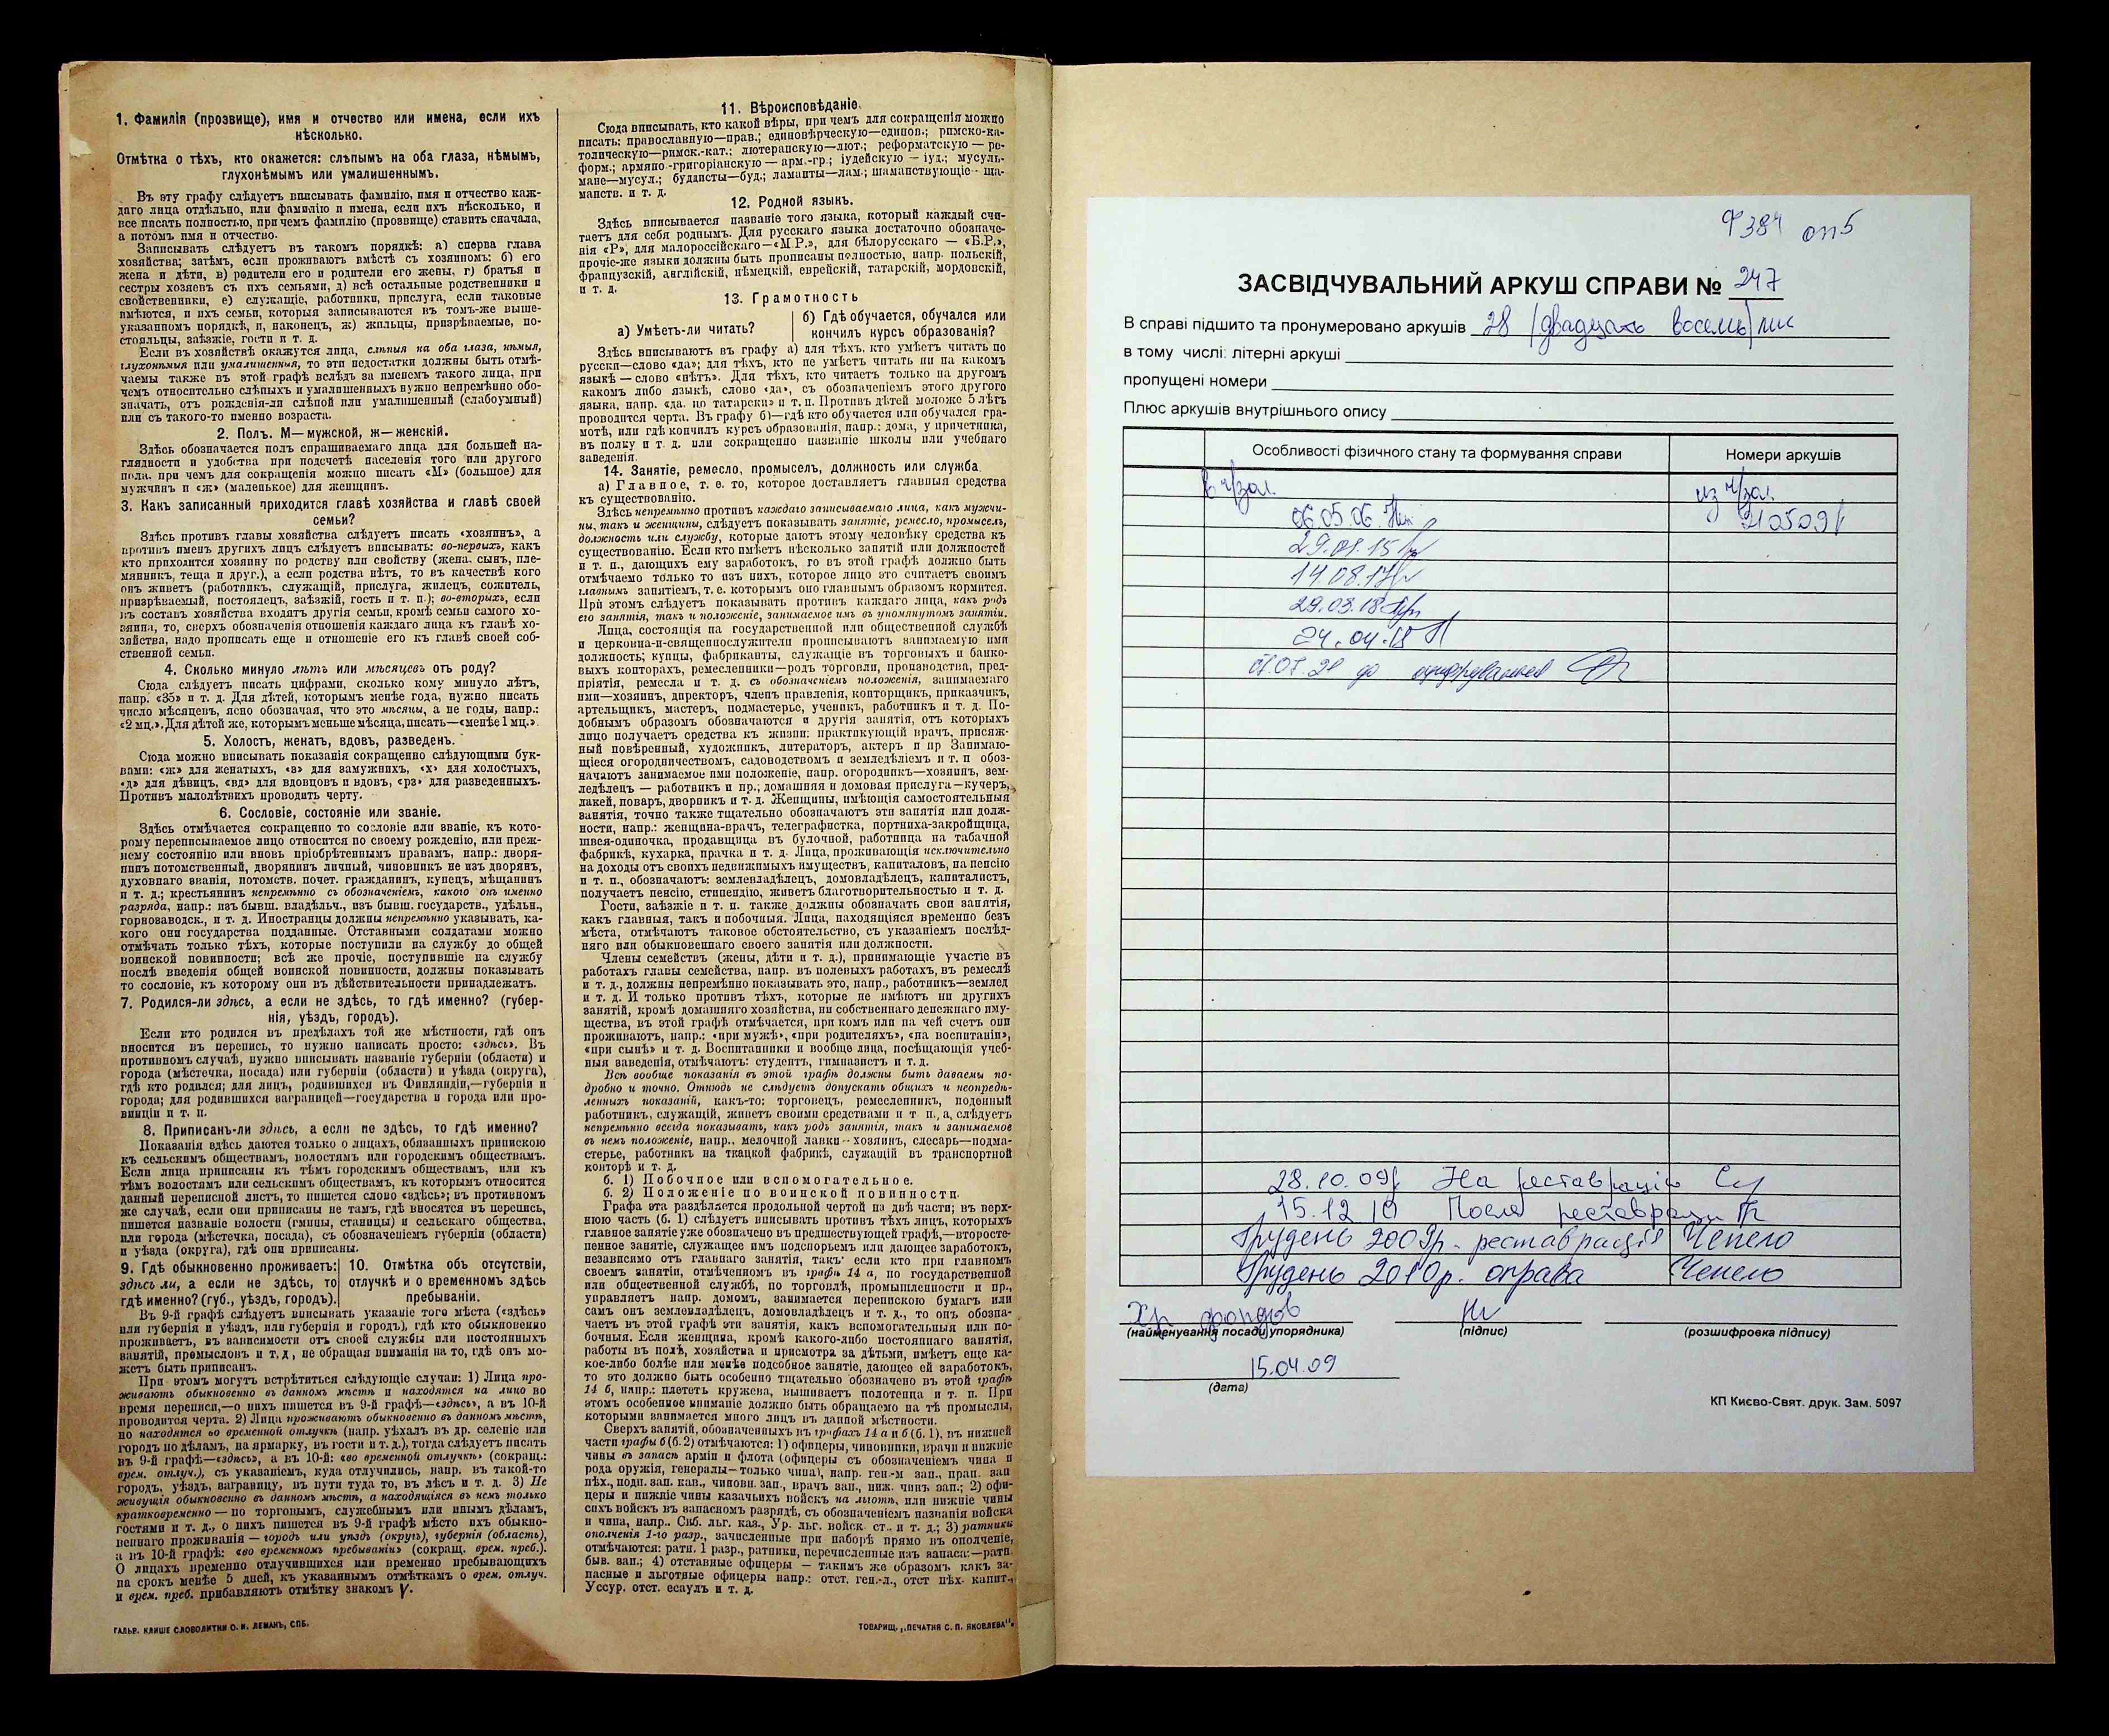 1. Фамилія (прозвище), имя и отчество или имена, если ихъ
нѣсколько.
Отмѣтка о тѣхъ, кто окажется: слѣпымъ на оба глаза, нѣмымъ,
глухонѣмымъ или умалишеннымъ.
Въ эту графу слѣдуетъ вписывать фамилію, имя и отчество каж-
даго лица отдѣльно, или фамилію и имена, если ихъ нѣсколько, и
все писать полностью, при чемъ фамилію (прозвище) ставить сначала,
а потомъ имя и отчество.
Записывать слѣдуетъ въ такомъ порядкѣ: а) сперва глава
хозяйства; затѣмъ, если проживаютъ вмѣстѣ съ хозяиномъ: б) его
жена и дѣти, в) родители его и родители его жены, г) братья и
сестры хозяевъ съ ихъ семьями, д) всѣ остальные родственники и
свойственники, е) служащіе, работники, прислуга, если таковые
имѣются, и ихъ семьи, которыя записываются въ томъ-же выше-
указанномъ порядкѣ, и, наконецъ, ж) жильцы, призрѣваемые, по-
стояльцы, заѣзжіе, гости и т. п.
Если въ хозяйствѣ окажутся лица, слѣпыя на оба глаза, нѣмыя,
глухонѣмыя или умалишенныя, то эти недостатки должны быть отмѣ-
чаемы также въ этой графѣ вслѣдъ за именемъ такого лица, при
чемъ относительно слѣпыхъ и умалишенныхъ нужно непремѣнно обо-
значать, отъ рожденія-ли слѣпой или умалишенный (слабоумный)
или съ такого-то именно возраста.
2. Полъ. М—мужской, ж—женскій.
Здѣсь обозначается полъ спрашиваемаго лица для большей на-
глядности и удобства при подсчетѣ населенія того или другого
пола, при чемъ для сокращенія можно писать «М» (большое) для
мужчинъ и «ж» (маленькое) для женщинъ.
3. Какъ записанный приходится главѣ хозяйства и главѣ своей
семьи?
Здѣсь противъ главы хозяйства слѣдуетъ писать «хозяинъ», а
противъ именъ другихъ лицъ слѣдуетъ вписывать: во-первыхъ, какъ
кто приходится хозяину по родству или свойству (жена, сынъ, пле-
мянникъ, теща и друг.), а если родства нѣтъ, то въ качествѣ кого
онъ живетъ (работникъ, служащій, прислуга, жилецъ, сожитель,
призрѣваемый, постоялецъ, заѣзжій, гость и т. п.); во-вторыхъ, если
въ составъ хозяйства входятъ другія семьи, кромѣ семьи самого хо-
зяина, то, сверхъ обозначенія отношенія каждаго лица къ главѣ хо-
зяйства, надо прописать еще и отношеніе его къ главѣ своей соб-
ственной семьи.
4. Сколько минуло лѣтъ или мѣсяцевъ отъ роду?
Сюда слѣдуетъ писать цифрами, сколько кому минуло лѣтъ,
напр. «35» и т. д. Для дѣтей, которымъ менѣе года, нужно писать
число мѣсяцевъ, ясно обозначая, что это мѣсяцы, а не годы, напр.:
«2 мц.». Для дѣтей же, которымъ меньше мѣсяца, писать—«менѣе 1 мц.».
5. Холостъ, женатъ, вдовъ, разведенъ.
Сюда можно вписывать показанія сокращенно слѣдующими бук-
вами: «ж» для женатыхъ, «з» для замужнихъ, «х» для холостыхъ,
«д» для дѣвицъ, «вд» для вдовцовъ и вдовъ, «рз» для разведенныхъ.
Противъ малолѣтнихъ проводить черту.
6. Сословіе, состояніе или званіе.
Здѣсь отмѣчается сокращенно то сословіе или званіе, къ кото-
рому переписываемое лицо относится по своему рожденію, или преж-
нему состоянію или вновь пріобрѣтеннымъ правамъ, напр.: дворя-
нинъ потомственный, дворянинъ личный, чиновникъ не изъ дворянъ,
духовнаго званія, потомств. почет. гражданинъ, купецъ, мѣщанинъ
и т. д.; крестьянинъ непремѣнно съ обозначеніемъ, какого онъ именно
разряда, напр.: изъ бывш. владѣльч., изъ бывш. государств., удѣльн.,
горнозаводск., и т. д. Иностранцы должны непремѣнно указывать, ка-
кого они государства подданные. Отставными солдатами можно
отмѣчать только тѣхъ, которые поступили на службу до общей
воинской повинности; всѣ же прочіе, поступившіе на службу
послѣ введенія общей воинской повинности, должны показывать
то сословіе, къ которому они въ дѣйствительности принадлежатъ.
7. Родился-ли здѣсь, а если не здѣсь, то гдѣ именно? (губер-
нія, уѣздъ, городъ).
Если кто родился въ предѣлахъ той же мѣстности, гдѣ онъ
вносится въ перепись, то нужно написать просто: «здѣсь». Въ
противномъ случаѣ, нужно вписывать названіе губерніи (области) и
города (мѣстечка, посада) или губерніи (области) и уѣзда (округа),
гдѣ кто родился; для лицъ, родившихся въ Финляндіи,—губернія и
города; для родившихся заграницей—государства и города или про-
винціи и т. п.
8. Приписанъ-ли здѣсь, а если не здѣсь, то гдѣ именно?
Показанія здѣсь даются только о лицахъ, обязанныхъ припискою
къ сельскимъ обществамъ, волостямъ или городскимъ обществамъ.
Если лица приписаны къ тѣмъ городскимъ обществамъ, или къ
тѣмъ волостямъ или сельскимъ обществамъ, къ которымъ относится
данный переписной листъ, то пишется слово «здѣсь»; въ противномъ
же случаѣ, если они приписаны не тамъ, гдѣ вносятся въ перепись,
пишется названіе волости (гмины, станицы) и сельскаго общества,
или города (мѣстечка, посада), съ обозначеніемъ губерніи (области)
и уѣзда (округа), гдѣ они приписаны.
9. Гдѣ обыкновенно проживаетъ:
здѣсь ли, а если не здѣсь, то
гдѣ именно? (губ., уѣздъ, городъ).
10. Отмѣтка объ отсутствіи,
отлучкѣ и о временномъ здѣсь
пребываніи.
Въ 9-й графѣ слѣдуетъ вписывать указаніе того мѣста («здѣсь»
или губернія и уѣздъ, или губернія и городъ), гдѣ кто обыкновенно
проживаетъ, въ зависимости отъ своей службы или постоянныхъ
занятій, промысловъ и т. д., не обращая вниманія на то, гдѣ онъ мо-
жетъ быть приписанъ.
При этомъ могутъ встрѣтиться слѣдующіе случаи: 1) Лица про-
живаютъ обыкновенно въ данномъ мѣстѣ и находятся на лицо во
время переписи,—о нихъ пишется въ 9-й графѣ—«здѣсь», а въ 10-й
проводится черта. 2) Лица проживаютъ обыкновенно въ данномъ мѣстѣ,
но находятся во временной отлучкѣ (напр. уѣхалъ въ др. селеніе или
городъ по дѣламъ, на ярмарку, въ гости и т. д.), тогда слѣдуетъ писать
въ 9-й графѣ—«здѣсь», а въ 10-й: «во временной отлучкѣ» (сокращ.:
врем. отлуч.), съ указаніемъ, куда отлучились, напр. въ такой-то
городъ, уѣздъ, заграницу, въ пути туда то, въ лѣсъ и т. д. 3) Не
живущія обыкновенно въ данномъ мѣстѣ, а находящіяся въ немъ только
кратковременно — по торговымъ, служебнымъ или инымъ дѣламъ,
гостями и т. д., о нихъ пишется въ 9-й графѣ мѣсто ихъ обыкно-
веннаго проживанія — городъ или уѣздъ (округъ), губернія (область),
а въ 10-й графѣ: «во временномъ пребываніи» (сокращ. врем. преб.).
О лицахъ временно отлучившихся или временно пребывающихъ
на срокъ менѣе 5 дней, къ указаннымъ отмѣткамъ о врем. отлуч.
и врем. преб. прибавляютъ отмѣтку знакомъ V.
ГАЛЬВ. КЛИШЕ СЛОВОЛИТНИ О. И. ЛЕМАНЪ, СПБ.
11. Вѣроисповѣданіе.
Сюда вписывать, кто какой вѣры, при чемъ для сокращенія можно
писать: православную—прав.; единовѣрческую—единов.; римско-ка-
толическую—римск.-кат.; лютеранскую—лют.; реформатскую — ре-
форм.; армяно-григоріанскую — арм.-гр.; іудейскую — іуд.; мусуль-
мане—мусул.; буддисты—буд.; ламаиты—лам.; шаманствующіе - ша-
манств. и т. д.
12. Родной языкъ.
Здѣсь вписывается названіе того языка, который каждый счи-
таетъ для себя роднымъ. Для русскаго языка достаточно обозначе-
нія «Р», для малороссійскаго—«М.Р.», для бѣлорусскаго — «Б.Р.»,
прочіе-же языки должны быть прописаны полностью, напр. польскій,
французскій, англійскій, нѣмецкій, еврейскій, татарскій, мордовскій,
и т. д.
13. Грамотность
а) Умѣетъ-ли читать?
б) Гдѣ обучается, обучался или
кончилъ курсъ образованія?
Здѣсь вписываютъ въ графу а) для тѣхъ, кто умѣетъ читать по
русски—слово «да»; для тѣхъ, кто не умѣетъ читать ни на какомъ
языкѣ — слово «нѣтъ». Для тѣхъ, кто читаетъ только на другомъ
какомъ либо языкѣ, слово «да», съ обозначеніемъ этого другого
языка, напр. «да, по татарски» и т. п. Противъ дѣтей моложе 5 лѣтъ
проводится черта. Въ графу б)—гдѣ кто обучается или обучался гра-
мотѣ, или гдѣ кончилъ курсъ образованія, напр.: дома, у причетника,
въ полку и т. д. или сокращенно названіе школы или учебнаго
заведенія.
14. Занятіе, ремесло, промыселъ, должность или служба.
а) Главное, т. е. то, которое доставляетъ главныя средства
къ существованію.
Здѣсь непремѣнно противъ каждаго записываемаго лица, какъ мужчи-
ны, такъ и женщины, слѣдуетъ показывать занятіе, ремесло, промыселъ,
должность или службу, которые даютъ этому человѣку средства къ
существованію. Если кто имѣетъ нѣсколько занятій или должностей
и т. п., дающихъ ему заработокъ, то въ этой графѣ должно быть
отмѣчаемо только то изъ нихъ, которое лицо это считаетъ своимъ
главнымъ занятіемъ, т. е. которымъ оно главнымъ образомъ кормится.
При этомъ слѣдуетъ показывать противъ каждаго лица, какъ родъ
его занятія, такъ и положеніе, занимаемое имъ въ упомянутомъ занятіи.
Лица, состоящія на государственной или общественной службѣ
и церковно-и-священнослужители прописываютъ занимаемую ими
должность; купцы, фабриканты, служащіе въ торговыхъ и банко-
выхъ конторахъ, ремесленники—родъ торговли, производства, пред-
пріятія, ремесла и т. д. съ обозначеніемъ положенія, занимаемаго
ими—хозяинъ, директоръ, членъ правленія, конторщикъ, приказчикъ,
артельщикъ, мастеръ, подмастерье, ученикъ, работникъ и т. д. По-
добнымъ образомъ обозначаются и другія занятія, отъ которыхъ
лицо получаетъ средства къ жизни: практикующій врачъ, присяж-
ный повѣренный, художникъ, литераторъ, актеръ и пр Занимаю-
щіеся огородничествомъ, садоводствомъ и земледѣліемъ и т. п обоз-
начаютъ занимаемое ими положеніе, напр. огородникъ—хозяинъ, зем-
ледѣлецъ — работникъ и пр.; домашняя и домовая прислуга—кучеръ,
лакей, поваръ, дворникъ и т. д. Женщины, имѣющія самостоятельныя
занятія, точно также тщательно обозначаютъ эти занятія или долж-
ности, напр.: женщина-врачъ, телеграфистка, портниха-закройщица,
швея-одиночка, продавщица въ булочной, работница на табачной
фабрикѣ, кухарка, прачка и т. д. Лица, проживающія исключительно
на доходы отъ своихъ недвижимыхъ имуществъ, капиталовъ, на пенсію
и т. п., обозначаютъ: землевладѣлецъ, домовладѣлецъ, капиталистъ,
получаетъ пенсію, стипендію, живетъ благотворительностью и т. д.
Гости, заѣзжіе и т. п. также должны обозначать свои занятія,
какъ главныя, такъ и побочныя. Лица, находящіяся временно безъ
мѣста, отмѣчаютъ таковое обстоятельство, съ указаніемъ послѣд-
няго или обыкновеннаго своего занятія или должности.
Члены семействъ (жены, дѣти и т. д.), принимающіе участіе въ
работахъ главы семейства, напр. въ полевыхъ работахъ, въ ремеслѣ
и т. д., должны непремѣнно показывать это, напр., работникъ—землед
и т. д. И только противъ тѣхъ, которые не имѣютъ ни другихъ
занятій, кромѣ домашняго хозяйства, ни собственнаго денежнаго иму-
щества, въ этой графѣ отмѣчается, при комъ или на чей счетъ они
проживаютъ, напр.: «при мужѣ», «при родителяхъ», «на воспитаніи»,
«при сынѣ» и т. д. Воспитанники и вообще лица, посѣщающія учеб-
ныя заведенія, отмѣчаютъ: студентъ, гимназистъ и т. д.
Всѣ вообще показанія въ этой графѣ должны быть даваемы по-
дробно и точно. Отнюдь не слѣдуетъ допускать общихъ и неопредѣ-
ленныхъ показаній, какъ-то: торговецъ, ремесленникъ, поденный
работникъ, служащій, живетъ своими средствами и т п., а, слѣдуетъ
непремѣнно всегда показывать, какъ родъ занятія, такъ и занимаемое
въ немъ положеніе, напр., мелочной лавки - хозяинъ, слесарь—подма-
стерье, работникъ на ткацкой фабрикѣ, служащій въ транспортной
конторѣ и т. д.
б. 1) Побочное или вспомогательное.
б. 2) Положеніе по воинской повинности.
Графа эта раздѣляется продольной чертой на двѣ части; въ верх-
нюю часть (б. 1) слѣдуетъ вписывать противъ тѣхъ лицъ, которыхъ
главное занятіе уже обозначено въ предшествующей графѣ,—второсте-
пенное занятіе, служащее имъ подспорьемъ или дающее заработокъ,
независимо отъ главнаго занятія, такъ: если кто при главномъ
своемъ занятіи, отмѣченномъ въ графѣ 14 а, по государственной
или общественной службѣ, по торговлѣ, промышленности и пр.,
управляетъ напр. домомъ, занимается перепискою бумагъ или
самъ онъ землевладѣлецъ, домовладѣлецъ и т. д., то онъ обозна-
чаетъ въ этой графѣ эти занятія, какъ вспомогательныя или по-
бочныя. Если женщина, кромѣ какого-либо постояннаго занятія,
работы въ полѣ, хозяйства и присмотра за дѣтьми, имѣетъ еще ка-
кое-либо болѣе или менѣе подсобное занятіе, дающее ей заработокъ,
то это должно быть особенно тщательно обозначено въ этой графѣ
14 б, напр.: плететъ кружева, вышиваетъ полотенца и т. п. При
этомъ особенное вниманіе должно быть обращаемо на тѣ промыслы,
которыми занимается много лицъ въ данной мѣстности.
Сверхъ занятій, обозначенныхъ въ графахъ 14 а и б (б. 1), въ нижней
части графы б (б.2) отмѣчаются: 1) офицеры, чиновники, врачи и нижніе
чины въ запасѣ арміи и флота (офицеры съ обозначеніемъ чина и
рода оружія, генералы—только чина), напр. ген.-м зап., прап. зап
пѣх., подп. зап. кав., чиновн. зап., врачъ зап., ниж. чинъ зап.; 2) офи-
церы и нижніе чины казачьихъ войскъ на льготѣ, или нижніе чины
сихъ войскъ въ запасномъ разрядѣ, съ обозначеніемъ названія войска
и чина, напр.. Сиб. льг. каз., Ур. льг. войск. ст.. и т. д.; 3) ратники
ополченія 1-го разр., зачисленные при наборѣ прямо въ ополченіе,
отмѣчаются: ратн. 1 разр., ратники, перечисленные изъ запаса:—ратн.
быв. зап.; 4) отставные офицеры — такимъ же образомъ какъ за-
пасные и льготные офицеры напр.: отст. ген.-л., отст пѣх. капит.,
Уссур. отст. есаулъ и т. д.
ТОВАРИЩ. „ПЕЧАТНЯ С. П. ЯКОВЛЕВА"
Ф384 оп5
ЗАСВІДЧУВАЛЬНИЙ АРКУШ СПРАВИ № 247
В справі підшито та пронумеровано аркушів 28 (двадцать восемь) лис
в тому числі: літерні аркуші
пропущені номери
Плюс аркушів внутрішнього опису
Особливості фізичного стану та формування справи
Номери аркушів
в ч/зал.
из ч/зал.
06.05.06.
210509
29.01.15
14.08.17
29.03.18
24.04.18
до оцифрування
28.10.09 На реставрацію
15.12.10 После реставрации
Грудень 2009р. реставрація Чепело
Грудень 2010р. оправа Чепело
Хр фондов
(найменування посади упорядника)
(підпис)
(розшифровка підпису)
15.04.09
(дата)
КП Києво-Свят. друк. Зам. 5097